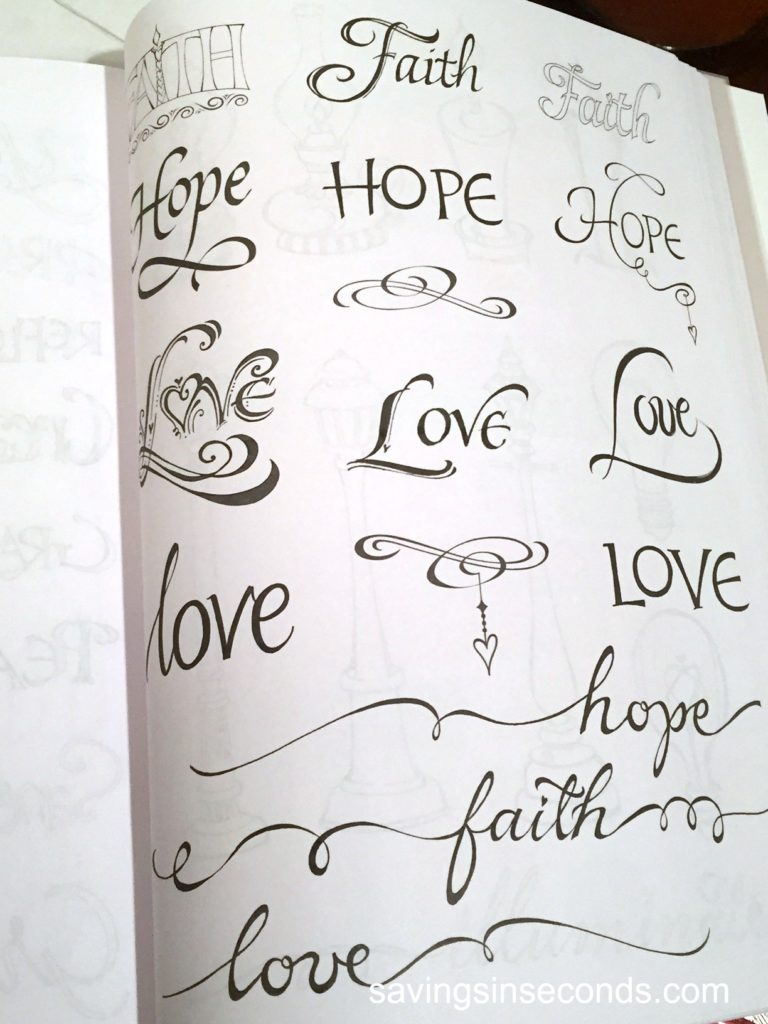 FAITH Faith Faith
Hope HOPE HOPE
Love LOVE Love
love LOVE
hope
faith
love
savingsinseconds.com